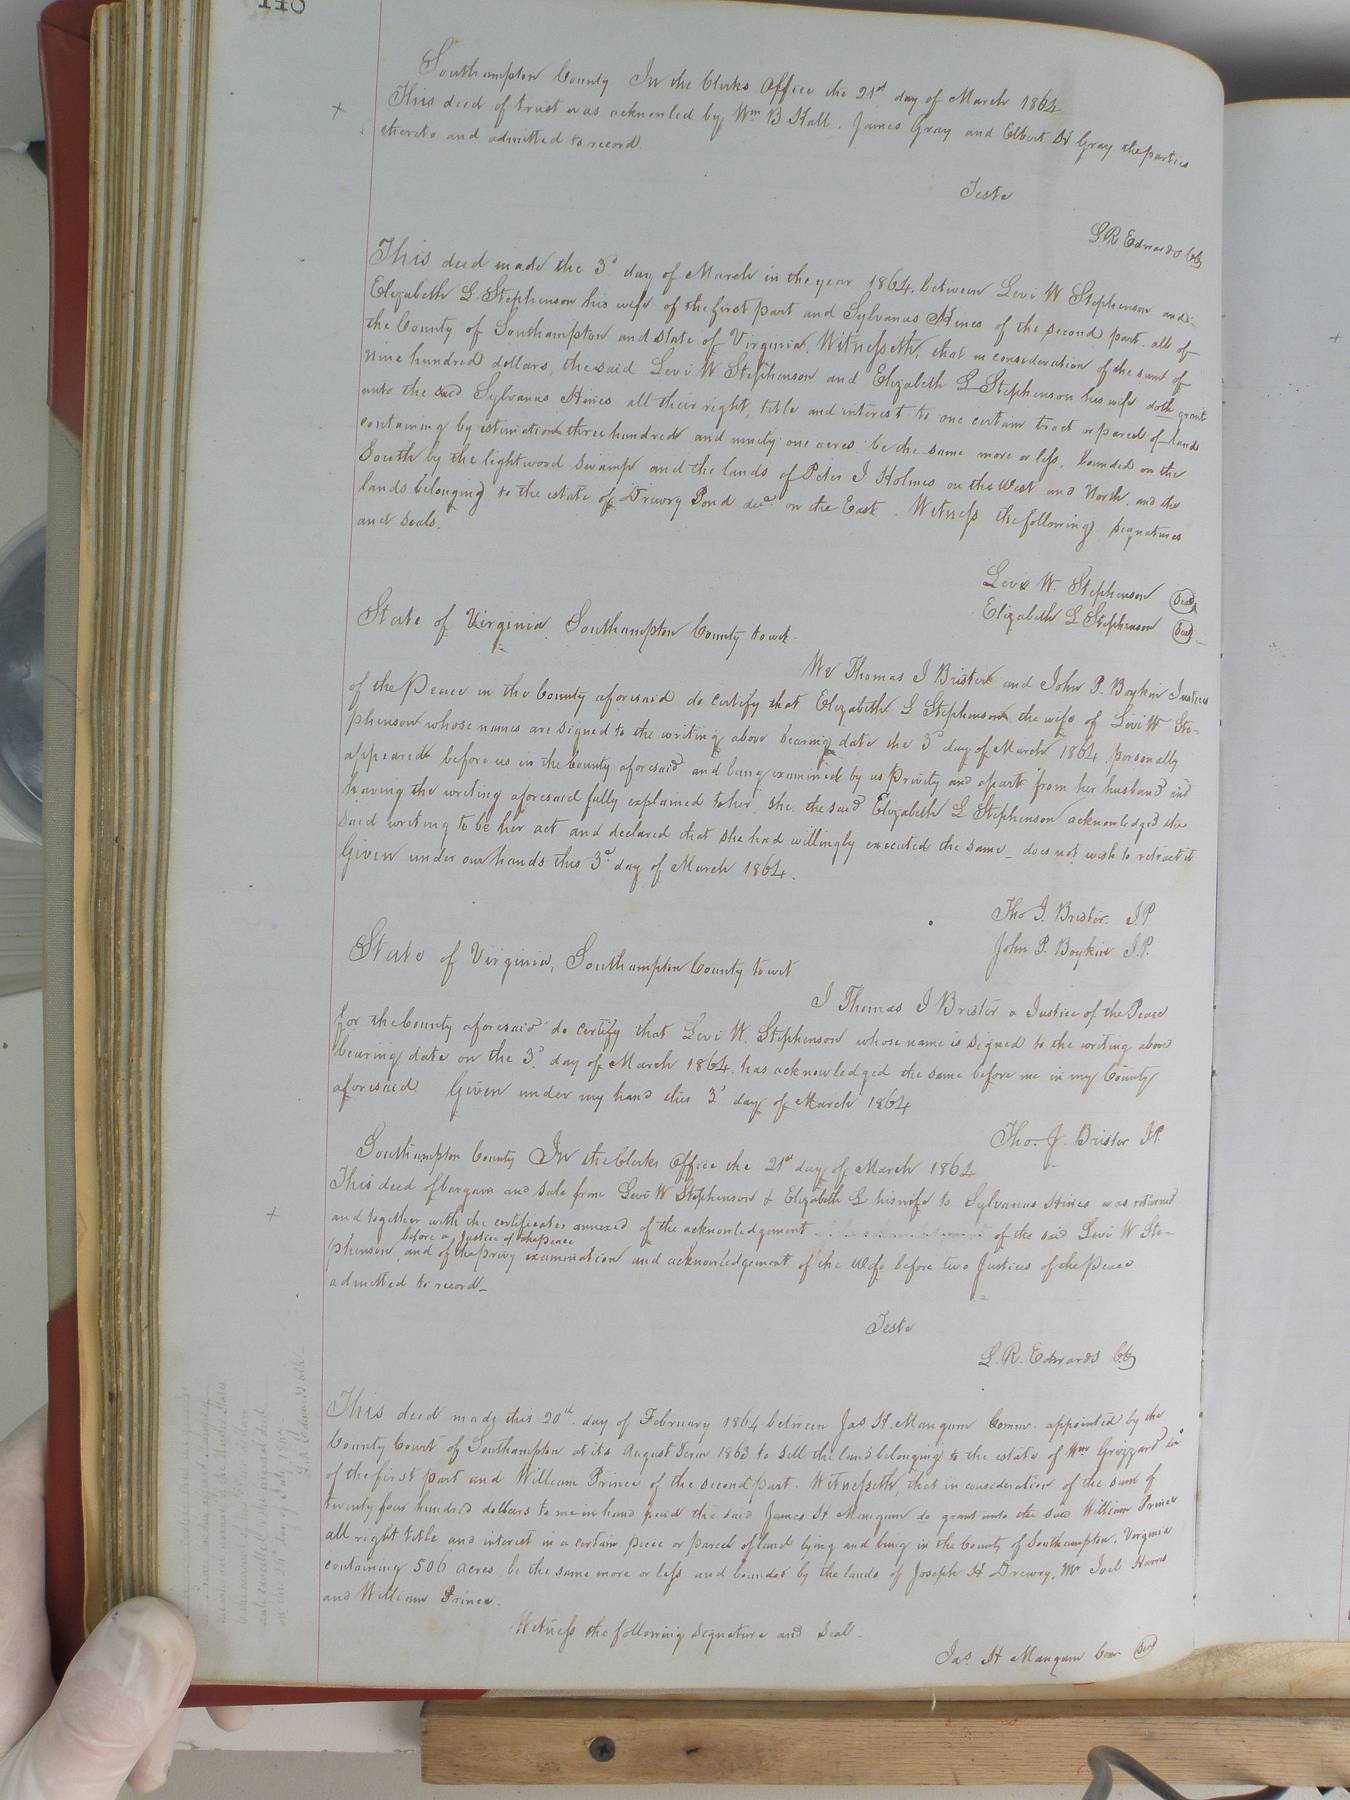 Southampton County In the Clerks Office the 21st day of March 1864
This deed of trust was acknowled by Wm B Hall. James Gray and Elbert H Gray the parties
thereto and admitted to record.
Teste
L R Edwards Clk
This deed made the 3d day of March in the year 1864. between Levi W Stephenson and
Elizabeth L Stephenson his wife of the first part and Sylvanus Hines of the second part. all of
the County of Southampton and State of Virginia, Witnesseth, that in consideration of the sum of
nine hundred dollars, the said Levi W Stephenson and Elizabeth L Stephenson his wife doth grant
unto the said Sylvanus Hines all their right, title and interest to one certain tract or parcel of lands
containing by estimation three hundred and ninety one acres be the same more or less, bounded on the
South by the lightwood Swamp and the lands of Peter J Holmes on the West and North, and the
lands belonging to the estate of Drewry Pond decd. on the East. Witness the following signatures
and seals.
Levi W. Stephenson Seal
Elizabeth L Stephenson Seal
State of Virginia Southampton County to wit
We Thomas J Brister and John P. Boykin Justices
of the Peace in the County aforesaid do certify that Elizabeth L Stephenson the wife of Levi W Ste-
phenson whose names are signed to the writing above bearing date the 3d day of March 1864, personally
appeared before us in the County aforesaid and being examined by us privily and apart from her husband and
having the writing aforesaid fully explained to her, she the said Elizabeth L Stephenson acknowledged the
said writing to be her act and declared that she had willingly executed the same_ does not wish to retract it
Given under our hands this 3d day of March 1864.
Tho J. Brister. J P
John P. Boykin J.P.
State of Virginia, Southampton County to wit
I Thomas J Brister a Justice of the Peace
for the County aforesaid do certify that Levi W. Stephenson whose name is signed to the writing above
bearing date on the 3d day of March 1864. has acknowledged the same before me in my County
aforesaid Given under my hand this 3d day of March 1864
Tho. J. Brister JP.
Southampton County In the Clerks Office the 21st day of March 1864
This deed of bargain and sale from Levi W Stephenson & Elizabeth L his wife to Sylvanus Hines was returned
and together with the certificates annexed of the acknowledgement of the said Levi W Ste-
before a Justice of the peace
phenson, and of the privy examination and acknowledgement of the Wife before two Justices of the peace
admitted to record_
Teste
L. R. Edwards Clk
This deed made this 20th day of February 1864 between Jas H. Mangum Comr. appointed by the
County Court of Southampton at its August Term 1863 to sell the land belonging to the estate of Wm Grizzard decd
of the first part and William Prince of the second part. Witnesseth, that in consideration of the sum of
twenty four hundred dollars to me in hand paid the said James H Mangum do grant unto the said William Prince
all right title and interest in a certain piece or parcel of land lying and being in the County of Southampton, Virginia
containing 506 acres be the same more or less and bounded by the lands of Joseph H Drewry, Mr Joel Harris
and William Prince.
Witness the following signature and seal.
Jas. H Mangum Com Seal